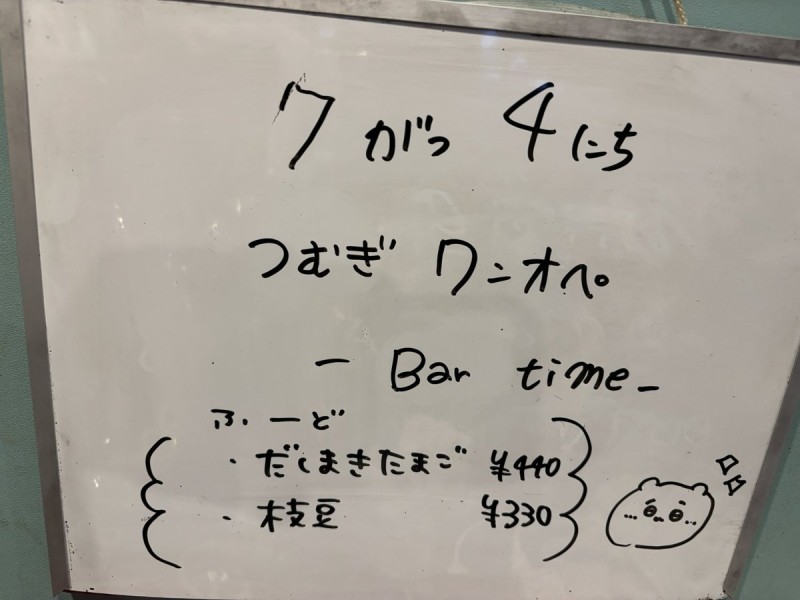 7がつ 4にち
つむぎ ワンオペ
- Bar time -
ふーど
・だしまきたまご ¥440
・枝豆 ¥330